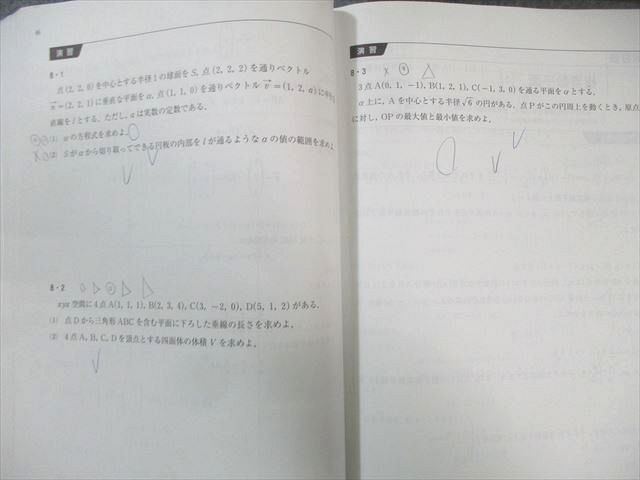 演習
8・1
点(2, 2, 0)を中心とする半径1の球面をS, 点(2, 2, 2)を通りベクトル
=(2, 2, 1)に垂直な平面をα, 点(1, 1, 0)を通りベクトル v=(1, 2, a)に
直線をlとする. ただし, aは実数の定数である.
(1) αの方程式を求めよ.
(2) Sがαから切り取ってできる円板の内部をlが通るようなaの値の範囲を求め
8・2
xyz空間に4点A(1, 1, 1), B(2, 3, 4), C(3, −2, 0), D(5, 1, 2)がある.
(1) 点Dから三角形ABCを含む平面に下ろした垂線の長さを求めよ.
(2) 4点A, B, C, Dを頂点とする四面体の体積Vを求めよ.
演習
8・3
3点A(0, 1, −1), B(1, 2, 1), C(−1, 3, 0)を通る平面をαとする.
α上に, Aを中心とする半径√6の円がある. 点Pがこの円周上を動くとき, 原点
に対し, OPの最大値と最小値を求めよ.